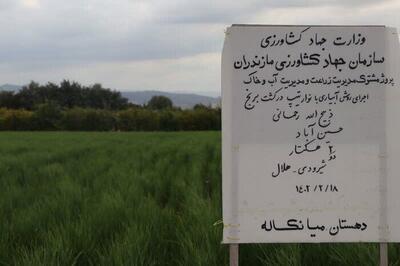 وزارت جهاد کشاورزی
سازمان جهاد کشاورزی مازندران
پروژه مشترک مدیریت زراعت و مدیریت آب و خاک
اجرای روش آبیاری با نوار تیپ در کشت برنج
ذبیح الله رحمانی
حسین آباد
۲ هکتار
شیرودی - هلال
۱۴۰۲/۲/۱۸
دهستان میانکاله